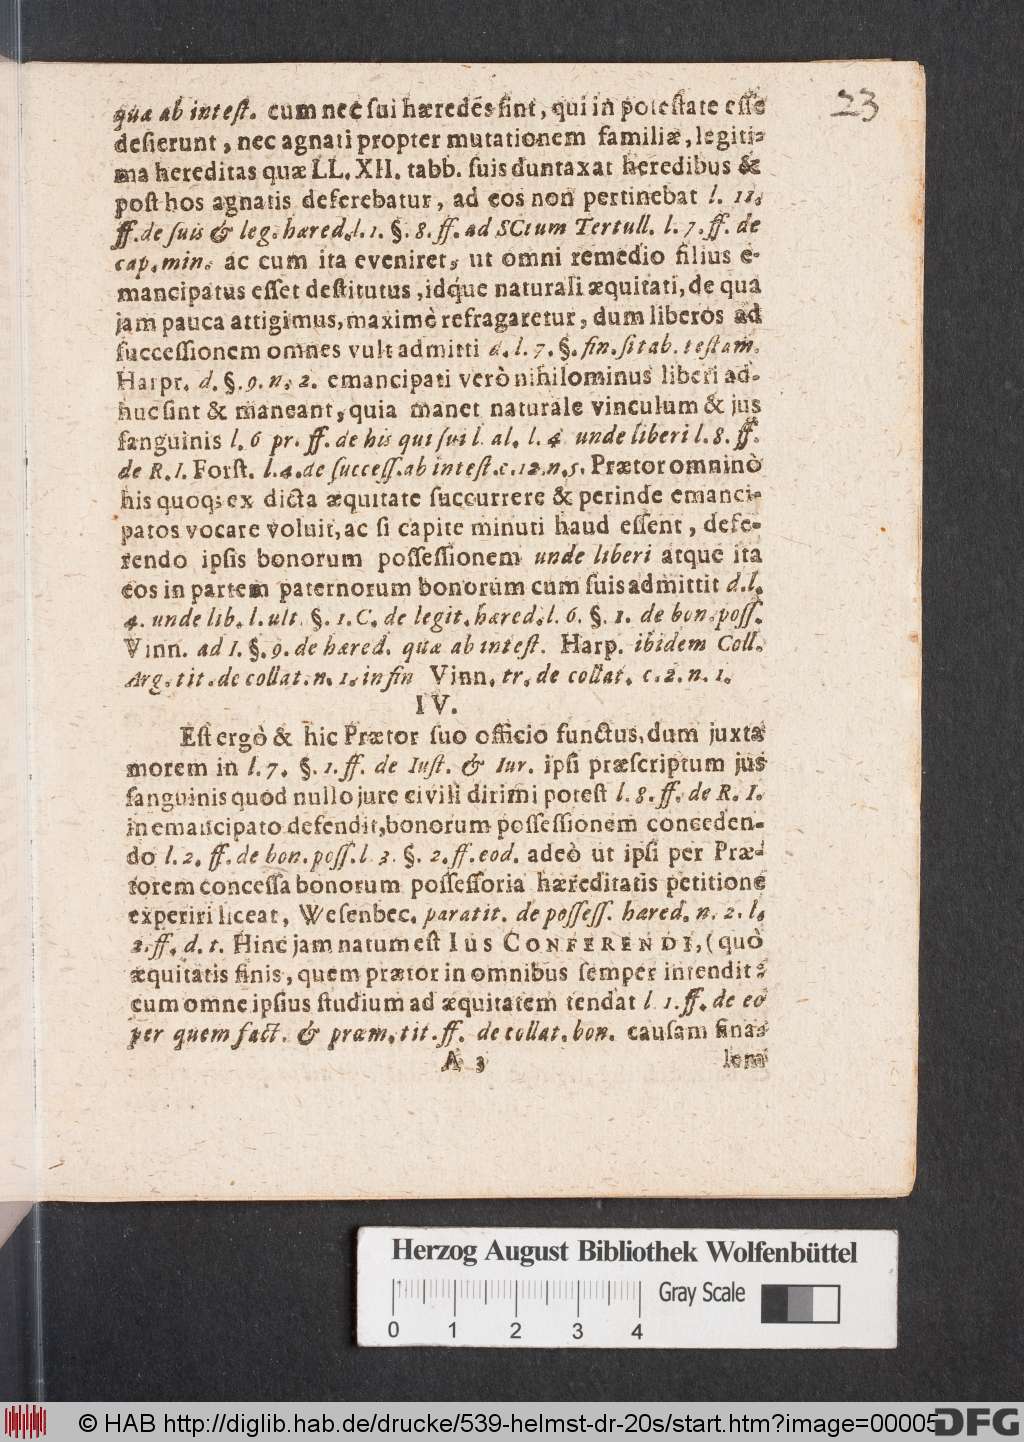 23
quæ ab intest. cum nec sui hæredes sint, qui in potestate esse
desierunt, nec agnati propter mutationem familiæ, legiti-
ma hereditas quæ LL. XII. tabb. suis duntaxat heredibus &
post hos agnatis deferebatur, ad eos non pertinebat l. 11.
ff. de suis & leg. hæred. l. 1. §. 8. ff. ad SCtum Tertull. l. 7. ff. de
cap. min. ac cum ita eveniret, ut omni remedio filius e-
mancipatus esset destitutus, idq́ue naturali æquitati, de qua
jam pauca attigimus, maximè refragaretur, dum liberos ad
successionem omnes vult admitti d. l. 7. §. fin. si tab. testam.
Harpr. d. §. 9. n. 2. emancipati verò nihilominus liberi ad-
huc sint & maneant, quia manet naturale vinculum & jus
sanguinis l. 6 pr. ff. de his qui sui l. al. l. 4 unde liberi l. 8. ff.
de R. I. Forst. l. 4. de success. ab intest. c. 12. n. 5. Prætor omninò
his quoq; ex dicta æquitate succurrere & perinde emanci-
patos vocare voluit, ac si capite minuti haud essent, defe-
rendo ipsis bonorum possessionem unde liberi atque ita
eos in partem paternorum bonorum cum suis admittit d. l.
4. unde lib. l. ult. §. 1. C. de legit. hæred. l. 6. §. 1. de bon. poss.
Vinn. ad I. §. 9. de hæred. quæ ab intest. Harp. ibidem Coll.
Arg. tit. de collat. n. 1. in fin Vinn. tr. de collat. c. 2. n. 1.
IV.
Est ergò & hic Prætor suo officio functus, dum juxta
morem in l. 7. §. 1. ff. de Iust. & Iur. ipsi præscriptum jus
sanguinis quod nullo jure civili dirimi potest l. 8. ff. de R. I.
in emancipato defendit, bonorum possessionem conceden-
do l. 2. ff. de bon. poss. l 3. §. 2. ff. eod. adeò ut ipsi per Præ-
torem concessa bonorum possessoria hæreditatis petitione
experiri liceat, Wesenbec. paratit. de possess. hæred. n. 2. l.
2. ff. d. t. Hinc jam natum est Ius Conferendi, (quò
æquitatis finis, quem prætor in omnibus semper intendit:
cum omne ipsius studium ad æquitatem tendat l. 1. ff. de eo
per quem fact. & præm. tit. ff. de collat. bon. causam fina-
A 3 lem
Herzog August Bibliothek Wolfenbüttel
Gray Scale
0 1 2 3 4
© HAB http://diglib.hab.de/drucke/539-helmst-dr-20s/start.htm?image=00005
DFG